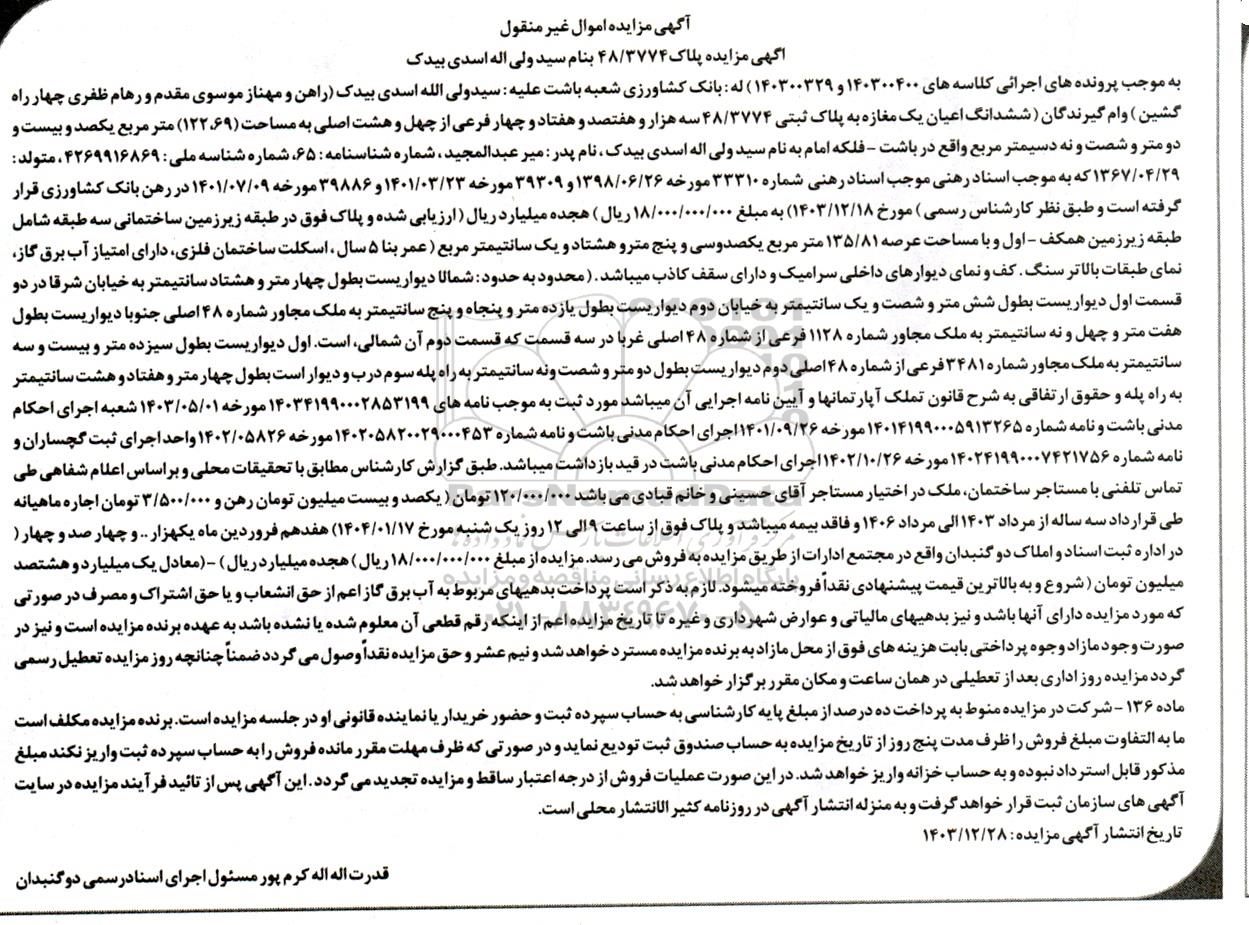 آگهی مزایده اموال غیر منقول
اگهی مزایده پلاک ۴۸/۳۷۷۴ بنام سید ولی اله اسدی بیدک
به موجب پرونده های اجرائی کلاسه های ۱۴۰۳۰۰۴۰۰ و ۱۴۰۳۰۰۳۲۹ ) له : بانک کشاورزی شعبه باشت علیه : سیدولی الله اسدی بیدک (راهن و مهناز موسوی مقدم و رهام ظفری چهار راه
گشین ) وام گیرندگان ( ششدانگ اعیان یک مغازه به پلاک ثبتی ۴۸/۳۷۷۴ سه هزار و هفتصد و هفتاد و چهار فرعی از چهل و هشت اصلی به مساحت (۱۲۲.۶۹) متر مربع یکصد و بیست و
دو متر و شصت و نه دسیمتر مربع واقع در باشت – فلکه امام به نام سید ولی اله اسدی بیدک ، نام پدر : میر عبدالمجید ، شماره شناسنامه : ۶۵، شماره شناسه ملی : ۴۲۶۹۹۱۶۸۶۹ ، متولد :
۱۳۶۷/۰۴/۲۹ که به موجب اسناد رهنی موجب اسناد رهنی شماره ۳۳۳۱۰ مورخه ۱۳۹۸/۰۶/۲۶ و ۳۹۳۰۹ مورخه ۱۴۰۱/۰۳/۲۳ و ۳۹۸۸۶ مورخه ۱۴۰۱/۰۷/۰۹ در رهن بانک کشاورزی قرار
گرفته است و طبق نظر کارشناس رسمی ) مورخ ۱۴۰۳/۱۲/۱۸) به مبلغ ۱۸/۰۰۰/۰۰۰/۰۰۰ ریال ) هجده میلیارد ریال ( ارزیابی شده و پلاک فوق در طبقه زیرزمین ساختمانی سه طبقه شامل
طبقه زیرزمین همکف – اول و با مساحت عرصه ۱۳۵/۸۱ متر مربع یکصدوسی و پنج مترو هشتاد و یک سانتیمتر مربع ( عمر بنا ۵ سال ، اسکلت ساختمان فلزی، دارای امتیاز آب برق گاز،
نمای طبقات بالاتر سنگ . کف و نمای دیوارهای داخلی سرامیک و دارای سقف کاذب میباشد . ( محدود به حدود : شمالا دیواریست بطول چهار متر و هشتاد سانتیمتر به خیابان شرقا در دو
قسمت اول دیواریست بطول شش متر و شصت و یک سانتیمتر به خیابان دوم دیواریست بطول یازده متر و پنجاه و پنج سانتیمتر به ملک مجاور شماره ۴۸ اصلی جنوبا دیواریست بطول
هفت متر و چهل و نه سانتیمتر به ملک مجاور شماره ۱۱۲۸ فرعی از شماره ۴۸ اصلی غربا در سه قسمت که قسمت دوم آن شمالی، است. اول دیواریست بطول سیزده متر و بیست و سه
سانتیمتر به ملک مجاور شماره ۳۴۸۱ فرعی از شماره ۴۸ اصلی دوم دیواریست بطول دو متر و شصت ونه سانتیمتر به راه پله سوم درب و دیوار است بطول چهار متر و هفتاد و هشت سانتیمتر
به راه پله و حقوق ارتفاقی به شرح قانون تملک آپارتمانها و آیین نامه اجرایی آن میباشد مورد ثبت به موجب نامه های ۱۴۰۳۴۱۹۹۰۰۰۲۸۵۳۱۹۹ مورخه ۱۴۰۳/۰۵/۰۱ شعبه اجرای احکام
مدنی باشت و نامه شماره ۱۴۰۱۴۱۹۹۰۰۰۵۹۱۳۲۶۵ مورخه ۱۴۰۱/۰۹/۲۶ اجرای احکام مدنی باشت و نامه شماره ۱۴۰۲۰۵۸۲۰۰۲۹۰۰۰۴۵۳ مورخه ۱۴۰۲/۰۵۸۲۶ واحد اجرای ثبت گچساران و
نامه شماره ۱۴۰۲۴۱۹۹۰۰۰۷۴۲۱۷۵۶ مورخه ۱۴۰۲/۱۰/۲۶ اجرای احکام مدنی باشت در قید بازداشت میباشد. طبق گزارش کارشناس مطابق با تحقیقات محلی و براساس اعلام شفاهی طی
تماس تلفنی با مستاجر ساختمان، ملک در اختیار مستاجر آقای حسینی و خانم قبادی می باشد ۱۲۰/۰۰۰/۰۰۰ تومان ( یکصد و بیست میلیون تومان رهن و ۳/۵۰۰/۰۰۰ تومان اجاره ماهیانه
طی قرارداد سه ساله از مرداد ۱۴۰۳ الی مرداد ۱۴۰۶ و فاقد بیمه میباشد و پلاک فوق از ساعت ۹ الی ۱۲ روز یک شنبه مورخ ۱۴۰۴/۰۱/۱۷) هفدهم فروردین ماه یکهزار .. و چهار صد و چهار (
در اداره ثبت اسناد و املاک دو گنبدان واقع در مجتمع ادارات از طریق مزایده به فروش می رسد. مزایده از مبلغ ۱۸/۰۰۰/۰۰۰/۰۰۰ ریال) هجده میلیارد ریال ) –(معادل یک میلیارد و هشتصد
میلیون تومان ( شروع و به بالاترین قیمت پیشنهادی نقداً فروخته میشود. لازم به ذکر است پرداخت بدهیهای مربوط به آب برق گاز اعم از حق انشعاب و یا حق اشتراک و مصرف در صورتی
که مورد مزایده دارای آنها باشد و نیز بدهیهای مالیاتی و عوارض شهرداری و غیره تا تاریخ مزایده اعم از اینکه رقم قطعی آن معلوم شده یا نشده باشد به عهده برنده مزایده است و نیز در
صورت وجود مازاد وجوه پرداختی بابت هزینه های فوق از محل مازاد به برنده مزایده مسترد خواهد شد و نیم عشر و حق مزایده نقداً وصول می گردد ضمناً چنانچه روز مزایده تعطیل رسمی
گردد مزایده روز اداری بعد از تعطیلی در همان ساعت و مکان مقرر برگزار خواهد شد.
ماده ۱۳۶ – شرکت در مزایده منوط به پرداخت ده درصد از مبلغ پایه کارشناسی به حساب سپرده ثبت و حضور خریدار یا نماینده قانونی او در جلسه مزایده است. برنده مزایده مکلف است
ما به التفاوت مبلغ فروش را ظرف مدت پنج روز از تاریخ مزایده به حساب صندوق ثبت تودیع نماید و در صورتی که ظرف مهلت مقرر مانده فروش را به حساب سپرده ثبت واریز نکند مبلغ
مذکور قابل استرداد نبوده و به حساب خزانه واریز خواهد شد. در این صورت عملیات فروش از درجه اعتبار ساقط و مزایده تجدید می گردد . این آگهی پس از تائید فرآیند مزایده در سایت
آگهی های سازمان ثبت قرار خواهد گرفت و به منزله انتشار آگهی در روزنامه کثیر الانتشار محلی است.
تاریخ انتشار آگهی مزایده : ۱۴۰۳/۱۲/۲۸
قدرت اله اله کرم پور مسئول اجرای اسنادرسمی دوگنبدان
ParsNamadData
پایگاه اطلاع رسانی مناقصه و مزایده
۰۲۱-۸۸۳۴۹۶۷۰-۵